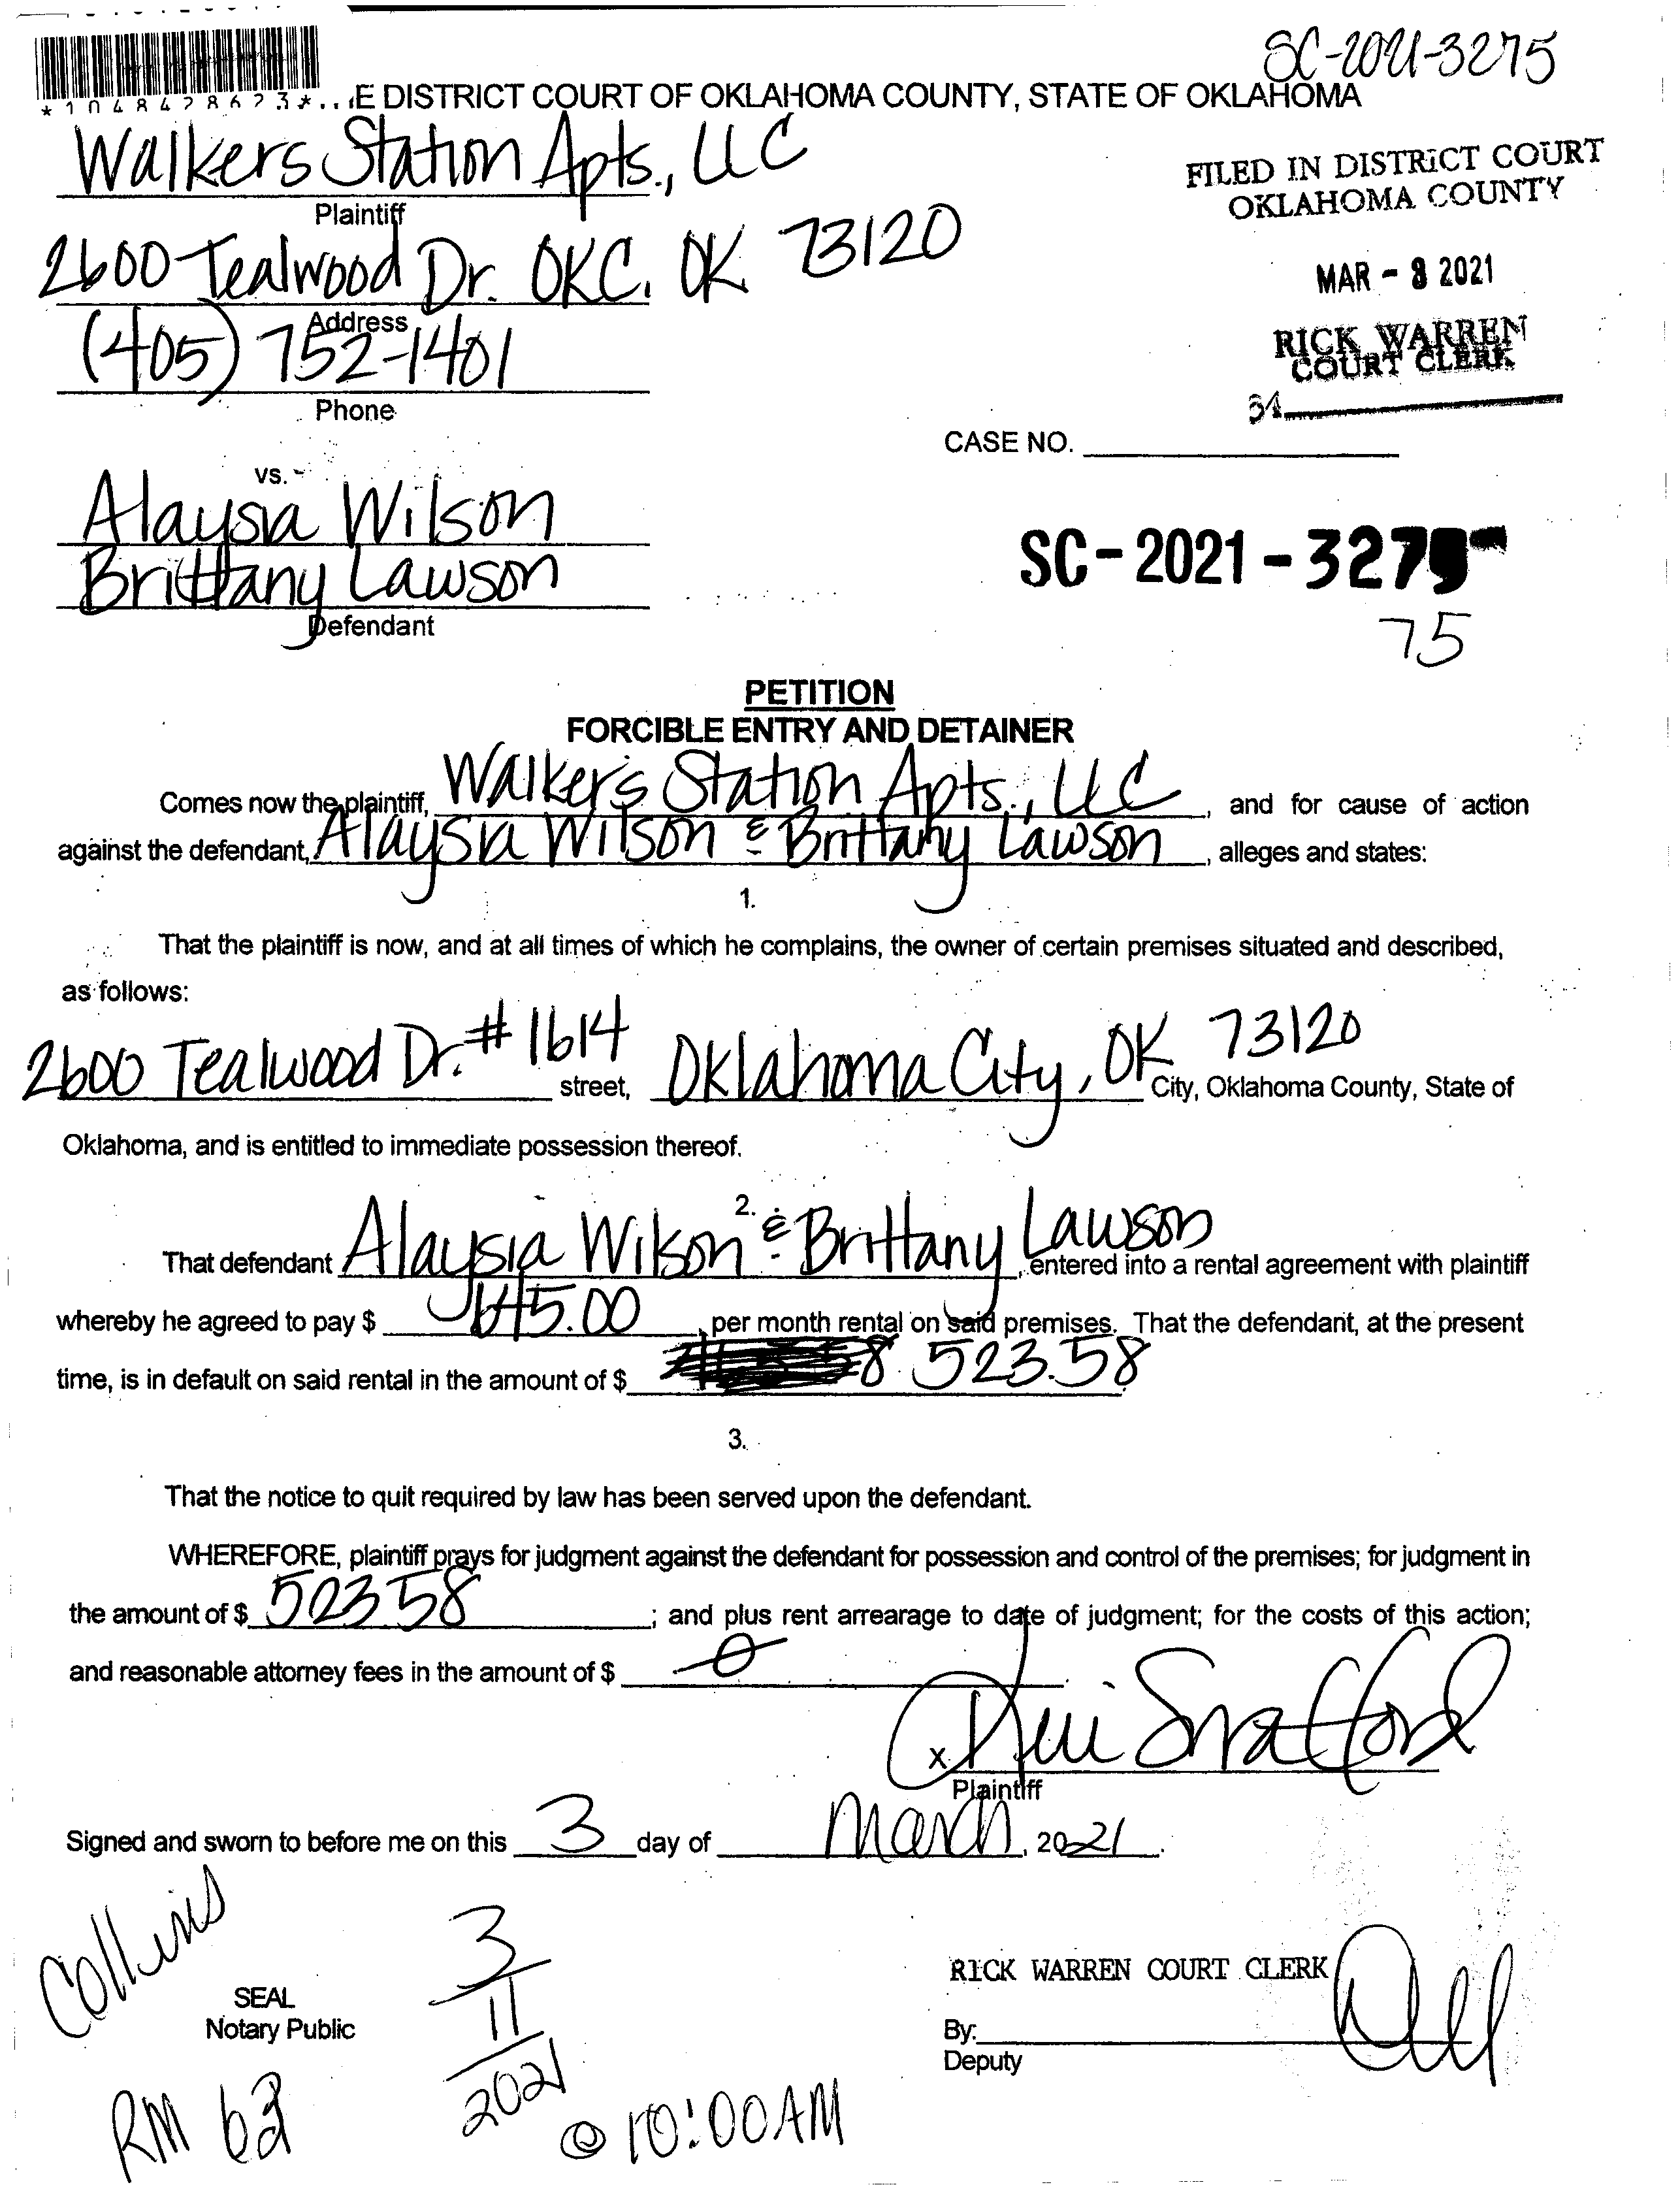 SC-2021-3275
*1048428623*
E DISTRICT COURT OF OKLAHOMA COUNTY, STATE OF OKLAHOMA
Walkers Station Apts., LLC
Plaintiff
2600 Tealwood Dr. OKC, OK 73120
Address
(405) 752-1401
Phone
FILED IN DISTRICT COURT
OKLAHOMA COUNTY
MAR - 8 2021
RICK WARREN
COURT CLERK
CASE NO.
vs.
Alaysia Wilson
Brittany Lawson
Defendant
SC-2021-327
75
PETITION
FORCIBLE ENTRY AND DETAINER
Comes now the plaintiff, Walker's Station Apts., LLC, and for cause of action
against the defendant, Alaysia Wilson & Brittany Lawson, alleges and states:
1.
That the plaintiff is now, and at all times of which he complains, the owner of certain premises situated and described,
as follows:
2600 Tealwood Dr. #1614 street, Oklahoma City, OK 73120 City, Oklahoma County, State of
Oklahoma, and is entitled to immediate possession thereof.
2.
That defendant Alaysia Wilson & Brittany Lawson, entered into a rental agreement with plaintiff
whereby he agreed to pay $ 645.00, per month rental on said premises. That the defendant, at the present
time, is in default on said rental in the amount of $ 523.58
3.
That the notice to quit required by law has been served upon the defendant.
WHEREFORE, plaintiff prays for judgment against the defendant for possession and control of the premises; for judgment in
the amount of $ 523.58; and plus rent arrearage to date of judgment; for the costs of this action;
and reasonable attorney fees in the amount of $ 0
x
Plaintiff
Signed and sworn to before me on this 3 day of March, 2021.
Collins
SEAL
Notary Public
3
11
2021
@ 10:00AM
RM
RICK WARREN COURT CLERK
By:
Deputy